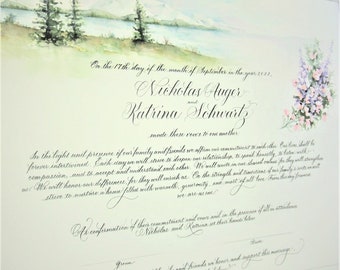 On the 17th day of the month of September in the year
Nicholas Auger
and
Katrina Schwartz
made these vows to one another
In the light and presence of our family and friends we affirm our commitment to each other. Our lives shall be
forever intertwined. Each day we will strive to deepen our relationship, to speak honestly, to listen with
compassion, and to accept and understand each other. We will
us. We will honor our differences for they will enrich us. On the strength and traditions of our family's
to nurture a home filled with warmth, generosity, and most of all love. From this day forward
we are as one.
As confirmation of their commitment and vows and in the presence of all in attendance
Nicholas and Katrina set their hands below.
Groom
friends we honor and support this marriage